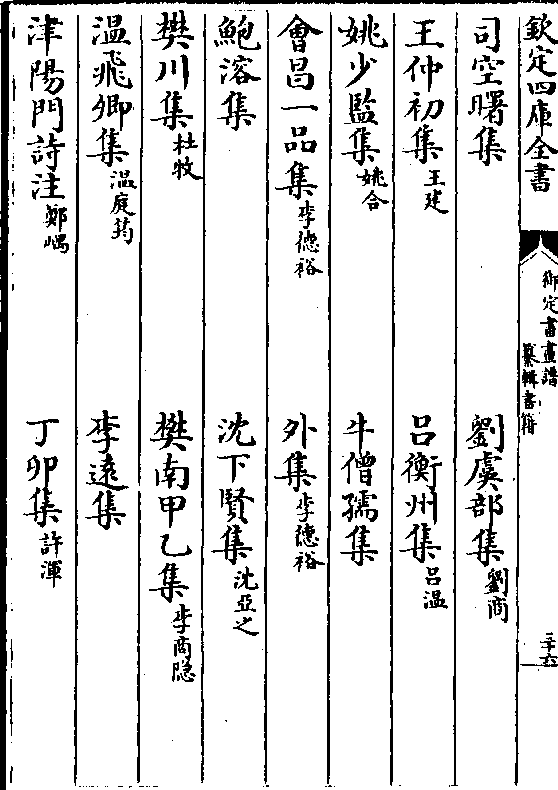 欽定四庫全書
御定書畫譜
纂輯書籍
三十六
司空曙集 劉虞部集劉商
王仲初集王建 吕衡州集吕温
姚少監集姚合 牛僧孺集
會昌一品集李德裕 外集李德裕
鮑溶集 沈下賢集沈亞之
樊川集杜牧 樊南甲乙集李商隠
温飛卿集温庭筠 李逺集
津陽門詩注鄭嵎 丁卯集許渾